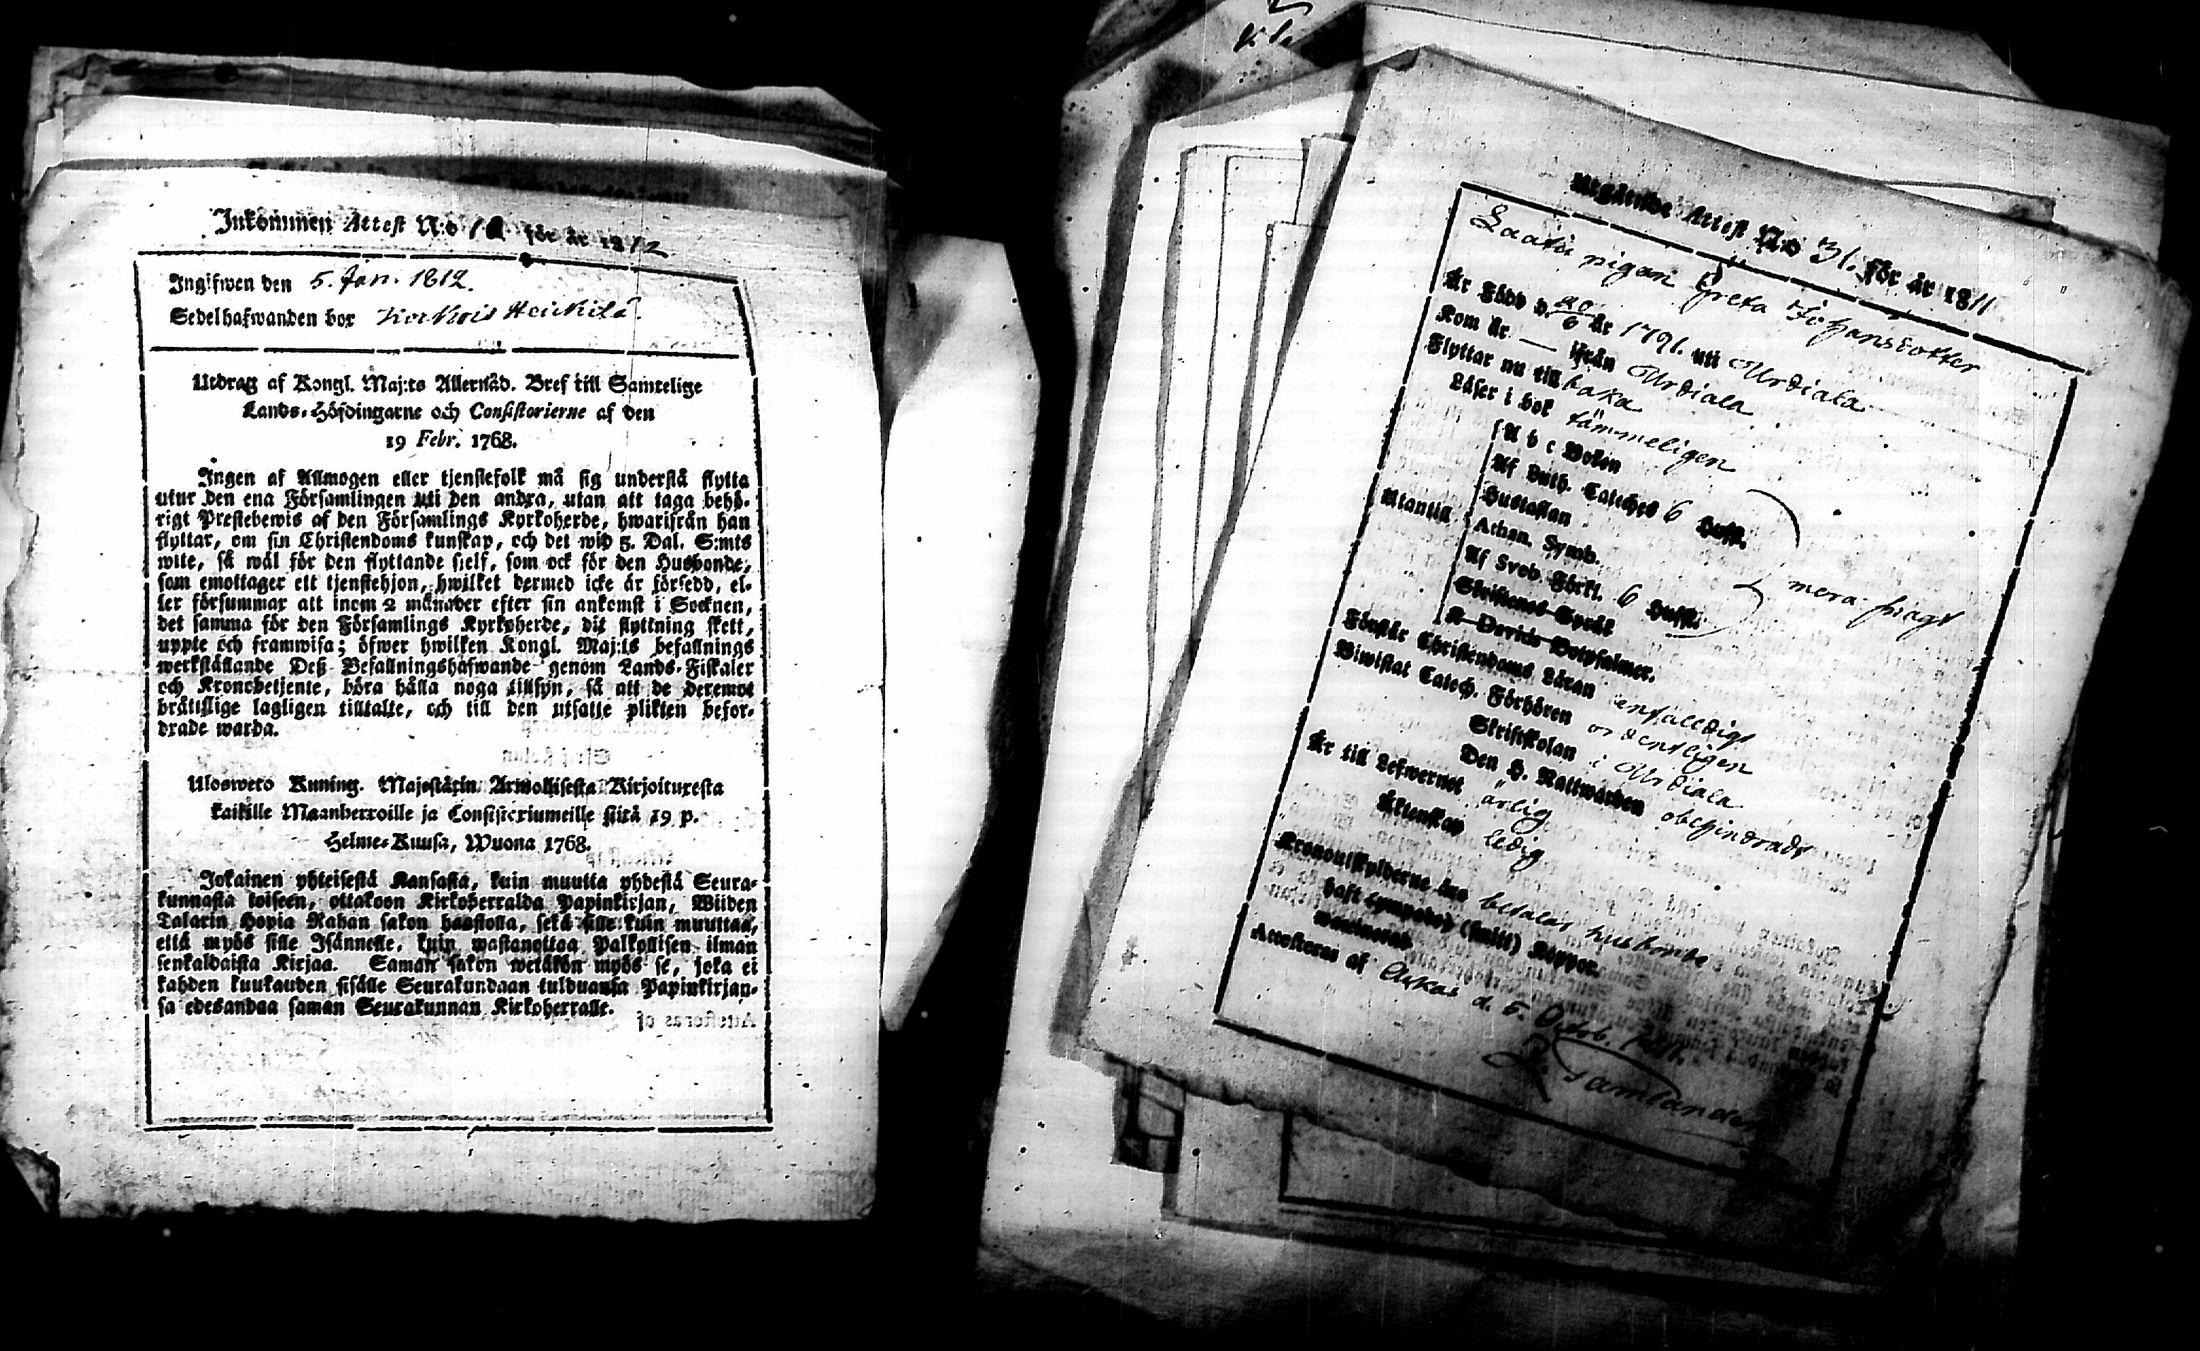 Inkommen Attest N:o för år 1812
Ingifwen den 5. Jan. 1812.
Sedelhafwanden bor
Utdrag af Kongl. Maj:ts Allernåd. Bref till Samtelige
Lands-Höfdingarne och Consistorierne af den
19 Febr. 1768.
Ingen af Allmogen eller tjenstefolk må sig understå flytta
utur den ena Församlingen uti den andra, utan att taga behö-
rigt Prestebewis af den Församlings Kyrkoherde, hwarifrån han
flyttar, om sin Christendoms kunskap, och det wid 5. Dal. S:mts
wite, så wäl för den flyttande sielf, som ock för den Husbonde,
som emottager ett tjenstehjon, hwilket dermed icke är försedd, el-
ler försummar att inom 2 månader efter sin ankomst i Socknen,
det samma för den Församlings Kyrkoherde, dit flyttning skett,
uppte och framwisa; öfwer hwilken Kongl. Maj:ts befallnings
werkställande Deß Befallningshafwande genom Lands-Fiskaler
och Kronobetjente, böra hålla noga tillsyn, så att de deremot
bråttslige lagligen tilltalte, och till den utsatte plikten befor-
drade warda.
Ulosweto Kuning. Majestätin Armollisesta Kirjoituxesta
kaikille Maanherroille ja Consistoriumeille siitä 19 p.
Helme-Kuusa, Wuona 1768.
Jokainen yhteisestä Kansasta, kuin muutta yhdestä Seura-
kunnasta toiseen, ottakoon Kirkoherralda Papinkirjan, Wiiden
Talarin Hopia Rahan sakon haastolla, sekä sille kuin muuttaa,
että myös sille Isännelle, kuin wastanottaa Palkollisen ilman
senkaldaista Kirjaa. Saman sakon wetäkön myös se, joka ei
kahden kuukauden sisälle Seurakundaan tulduansa Papinkirjan-
sa edesandaa saman Seurakunnan Kirkoherralle.
Utgående Attest N:o 31. för år 1811
pigan Greta Johansdotter
Är Född d. 20/6 år 1791. uti Urdiala
Kom år — ifrån Urdiala
Flyttar nu till baka
Läser i bok tämmeligen
Utantill
A b c Boken
Af Luth. Cateches 6 Hufst.
Hustaflan
Athan. Symb.
Af Sveb. Förkl. 6 Hufst.
Skriftenes Språk
K. Davids Botpsalmer.
Förstår Christendoms Läran enfaldigt
Biwistat Catech. Förhören ordentligen
Skriftskolan i Urdiala
Den H. Nattwarden obehindradt
Är till Lefwernet ärlig
Äktenskap ledig
Kronoutskylderne betalar husbonde
haft (smitt) Koppor.
Attesteras af Akkas d. 5. Octob. 1811.